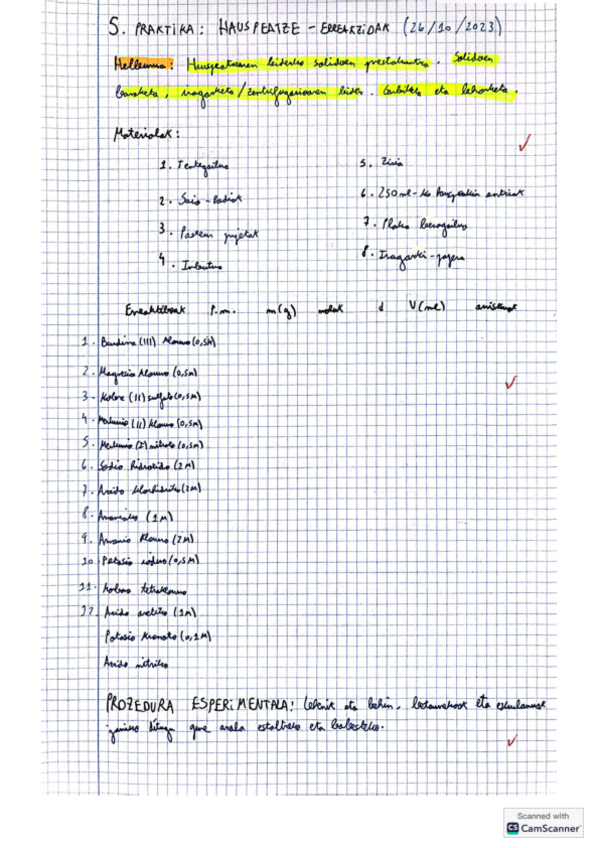 5. PRAKTIKA: HAUSPEATZE - ERREAKZIOAK (26/10/2023)
Helburua: Hauspeatzearen bidezko solidoen prestakuntza. Solidoen
banaketa, iragazketa/zentrifugazioaren bidez. Garbiketa eta lehorketa.
Materialak:
1. Tentegailua
2. Saio-hodiak
3. Pasteur pipetak
4. Inbutua
5. Ziria
6. 250 ml-ko hauspeatze ontziak
7. Plaka berogailua
8. Iragazki-papera
Erreaktiboak P.m. m(g) molak d V(ml) arriskuak
1. Burdina (III) kloruroa (0,5M)
2. Magnesio kloruroa (0,5M)
3. Kobre (II) sulfatoa (0,5M)
4. Merkurio (II) kloruroa (0,5M)
5. Merkurio (I) nitratoa (0,5M)
6. Sodio hidroxidoa (2M)
7. Azido klorhidrikoa (2M)
8. Amoniako (1M)
9. Amonio kloruroa (2M)
10. Potasio ioduroa (0,5M)
11. Karbono tetrakloruroa
12. Azido azetikoa (1M)
Potasio kromato (0,1M)
Azido nitrikoa
PROZEDURA ESPERIMENTALA: Lehenik eta behin, betaurrekoak eta eskularruak
jantziko ditugu gure azala estaltzeko eta babesteko.
Scanned with
CS CamScanner